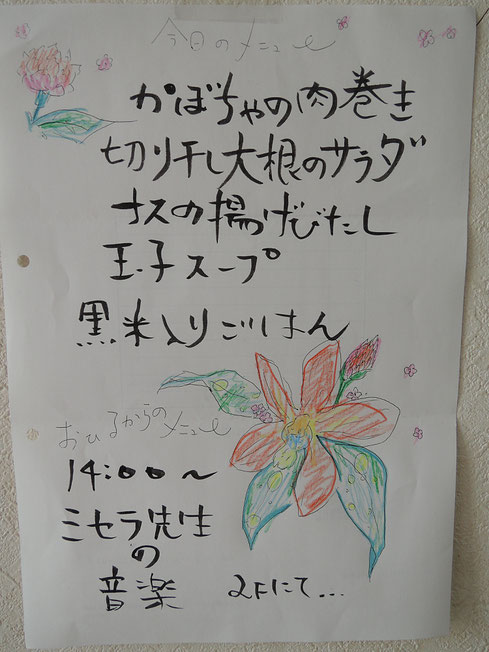 今日のメニュー
かぼちゃの肉巻き
切り干し大根のサラダ
ナスの揚げびたし
玉子スープ
黒米入りごはん
おひるからのメニュー
14:00〜
ミセラ先生
の
音楽 2Fにて...